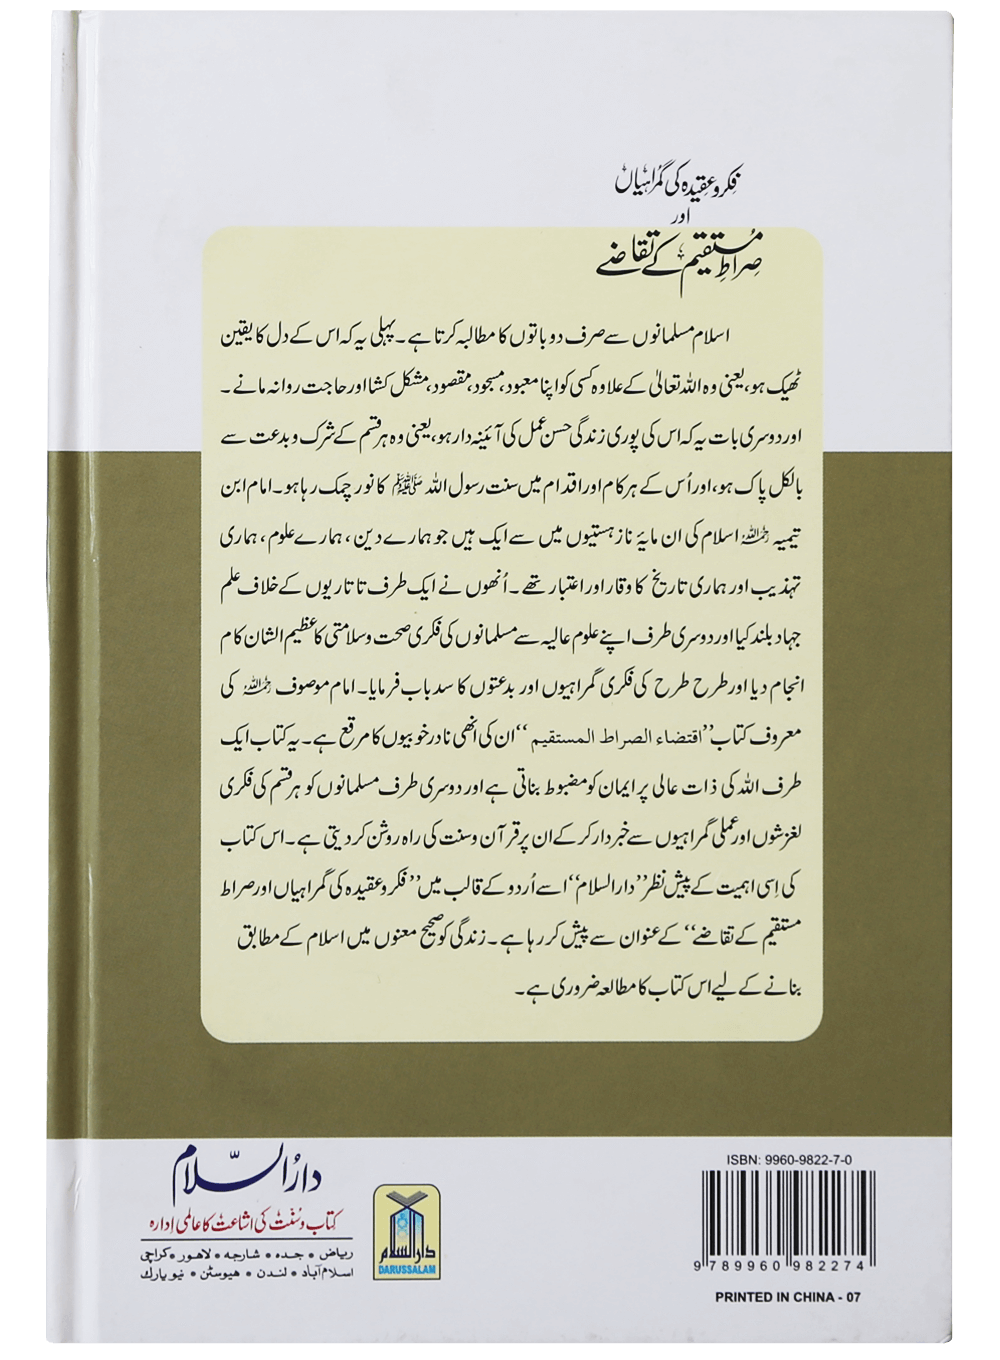 فکر و عقیدہ کی گمراہیاں
اور
صراطِ مستقیم کے تقاضے
اسلام مسلمانوں سے صرف دو باتوں کا مطالبہ کرتا ہے۔ پہلی یہ کہ اس کے دل کا یقین
ٹھیک ہو، یعنی وہ اللہ تعالیٰ کے علاوہ کسی کو اپنا معبود، مسجود، مقصود، مشکل کشا اور حاجت روا نہ مانے۔
اور دوسری بات یہ کہ اس کی پوری زندگی حسن عمل کی آئینہ دار ہو، یعنی وہ ہر قسم کے شرک و بدعت سے
بالکل پاک ہو، اور اُس کے ہر کام اور اقدام میں سنت رسول اللہ ﷺ کا نور چمک رہا ہو۔ امام ابن
تیمیہ رحمہ اللہ اسلام کی ان مایۂ ناز ہستیوں میں سے ایک ہیں جو ہمارے دین، ہمارے علوم، ہماری
تہذیب اور ہماری تاریخ کا وقار اور اعتبار تھے۔ اُنھوں نے ایک طرف تاتاریوں کے خلاف علم
جہاد بلند کیا اور دوسری طرف اپنے علوم عالیہ سے مسلمانوں کی فکری صحت و سلامتی کا عظیم الشان کام
انجام دیا اور طرح طرح کی فکری گمراہیوں اور بدعتوں کا سدباب فرمایا۔ امام موصوف رحمہ اللہ کی
معروف کتاب ’’اقتضاء الصراط المستقیم‘‘ ان کی انھی نادر خوبیوں کا مرقع ہے۔ یہ کتاب ایک
طرف اللہ کی ذات عالی پر ایمان کو مضبوط بناتی ہے اور دوسری طرف مسلمانوں کو ہر قسم کی فکری
لغزشوں اور عملی گمراہیوں سے خبردار کر کے ان پر قرآن و سنت کی راہ روشن کر دیتی ہے۔ اس کتاب
کی اِسی اہمیت کے پیش نظر ’’دارالسلام‘‘ اسے اُردو کے قالب میں ’’فکر و عقیدہ کی گمراہیاں اور صراط
مستقیم کے تقاضے‘‘ کے عنوان سے پیش کر رہا ہے۔ زندگی کو صحیح معنوں میں اسلام کے مطابق
بنانے کے لیے اس کتاب کا مطالعہ ضروری ہے۔
دارالسّلام
کتاب و سنّت کی اشاعت کا عالمی ادارہ
ریاض • جدہ • شارجہ • لاہور • کراچی
اسلام آباد • لندن • ہیوسٹن • نیو یارک
دارالسلام
DARUSSALAM
ISBN: 9960-9822-7-0
9 789960 982274
PRINTED IN CHINA - 07